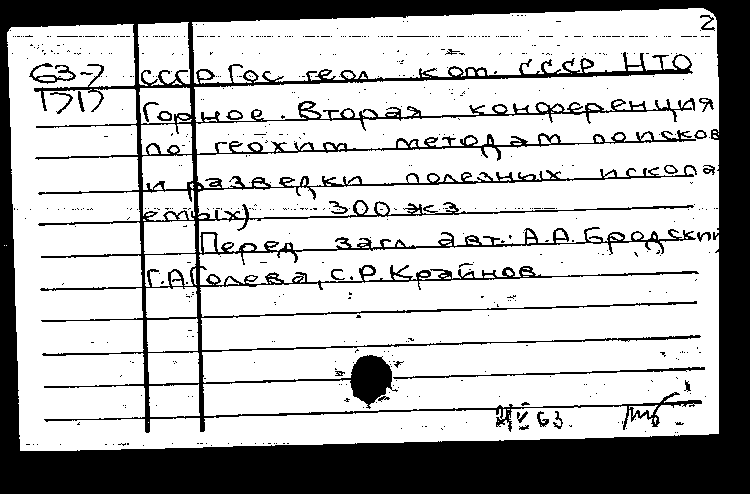 2
63-7 СССР Гос. геол. ком. СССР НТО
Горное. Вторая конференция
по геохим. методам поисков
и разведки полезных ископа-
емых). 300 экз.
Перед загл. авт.: А.А.Бродский,
Г.А.Голева, С.Р.Крайнов.
63.